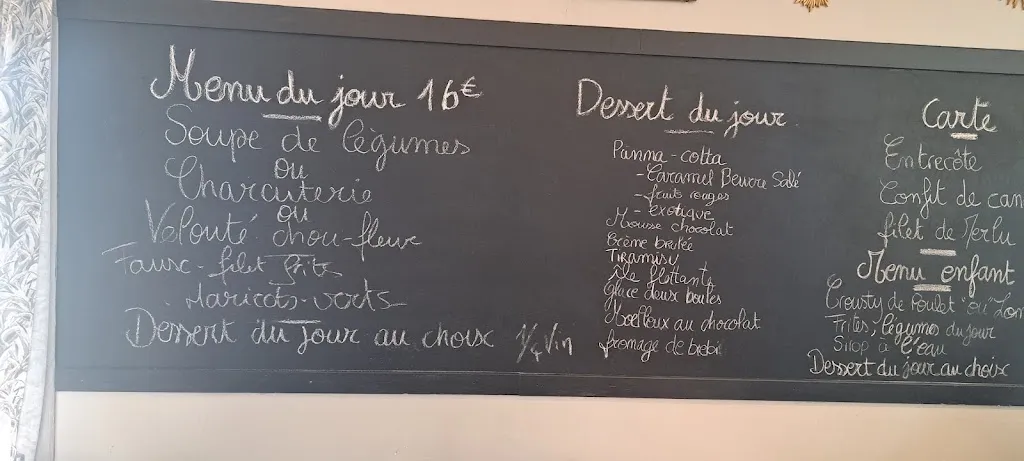 Menu du jour 16€
Soupe de légumes
ou
Charcuterie
ou
Velouté chou-fleur
Faux-filet Frite
Haricots-verts
Dessert du jour au choix 1/4 Vin
Dessert du jour
Panna-cotta
-Caramel Beurre Salé
-fruits rouges
-exotique
Mousse chocolat
Crème brulée
Tiramisu
île flottante
Glace deux boules
Moelleux au chocolat
fromage de brebis
Carte
Entrecôte
Confit de can
filet de Merlu
Menu enfant
Crousty de Poulet "ou"
Frites, légumes du jour
Sirop à l'eau
Dessert du jour au choix